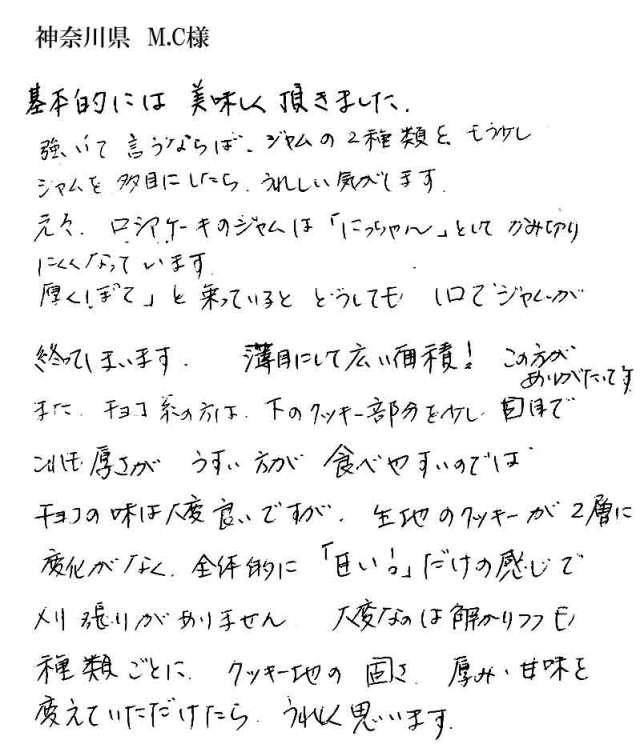 神奈川県 M.C様
基本的には 美味しく 頂きました。
強いて 言うならば、ジャムの 2種類を もう少し
ジャムを 多目にしたら、うれしい気がします。
元々、ロシアケーキのジャムは「にっちゃん」として かみ切り
にくくなって います。
厚く「ぼて」と 乗っていると どうしても 1口でジャムが
終ってしまいます。 薄目にして広い面積! この方が
ありがたいです
また、チョコ系の方は、下のクッキー部分を少し 固目で
これも 厚さが うすい方が 食べやすいのでは
チョコの味は大変良いですが、生地のクッキーが 2層に
変化がなく、全体的に「甘い!」だけの感じで
メリ張りがありません 大変なのは解かりつつも
種類ごとに、クッキー地の 固さ、厚み・甘味を
変えていただけたら、うれしく思います。